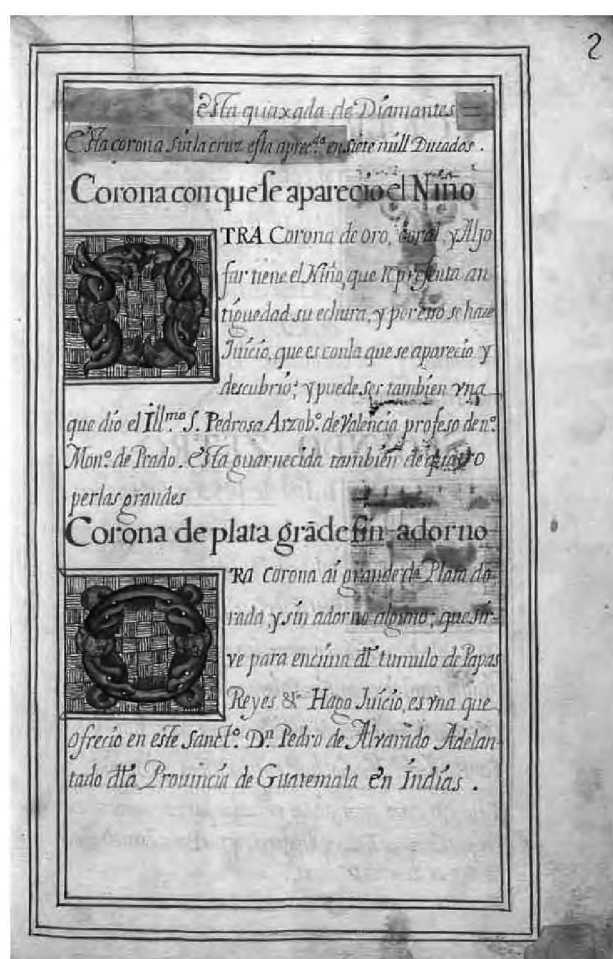 2
esta quaxada de Diamantes =
Esta corona sin la cruz esta aprec.da en siete mill Ducados .
Corona con que se aparecio el Niño
OTRA Corona de oro, coral, y Aljo
far tiene el Niño, que representa an
tiguedad su echura, y por esso se haze
Juicio, que es con la que se aparecio y
descubrio; y puede ser tambien vna
que dio el Ill.mo S. Pedrosa Arzob.o de Valencia profeso de n.o
Mon.o de Prado . esta guarnecida tambien de quatro
perlas grandes
Corona de plata grãde sin adorno
OTRA Corona ai grande de Plata do
rada y sin adorno alguno; que sir-
ve para encima dl tumulo de Papas
Reyes &c Hago Juicio, es vna que
ofrecio en este Sanct.o D.n Pedro de Alvarado Adelan-
tado dla Provincia de Guatemala en Indias .